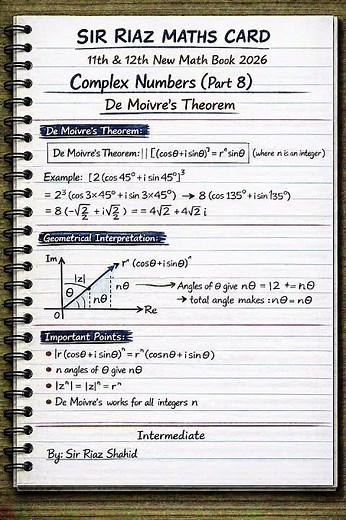 SIR RIAZ MATHS CARD
11th & 12th New Math Book 2026
Complex Numbers (Part 8)
De Moivre's Theorem
De Moivre's Theorem:
De Moivre's Theorem: || [(cosθ+i sinθ)³ = rⁿ sinθ] (where n is an integer)
Example: [2 (cos 45° + i sin 45°]³
= 2³ (cos 3×45° + i sin 3×45°) → 8 (cos 135° + i sin 135°)
= 8 (-√2/2 + i√2/2) = = 4√2 + 4√2 i
Geometrical Interpretation:
Im
rⁿ (cosθ + i sinθ)ⁿ
|z|
nθ
Angles of θ give nθ = |2 += nθ
θ
nθ
→ total angle makes : nθ = nθ
0
Re
Important Points:
• |r (cosθ + i sinθ)ⁿ = rⁿ (cosnθ + i sinθ)
• n angles of θ give nθ
• |zⁿ| = |z|ⁿ = rⁿ
• De Moivre's works for all integers n
Intermediate
By: Sir Riaz Shahid